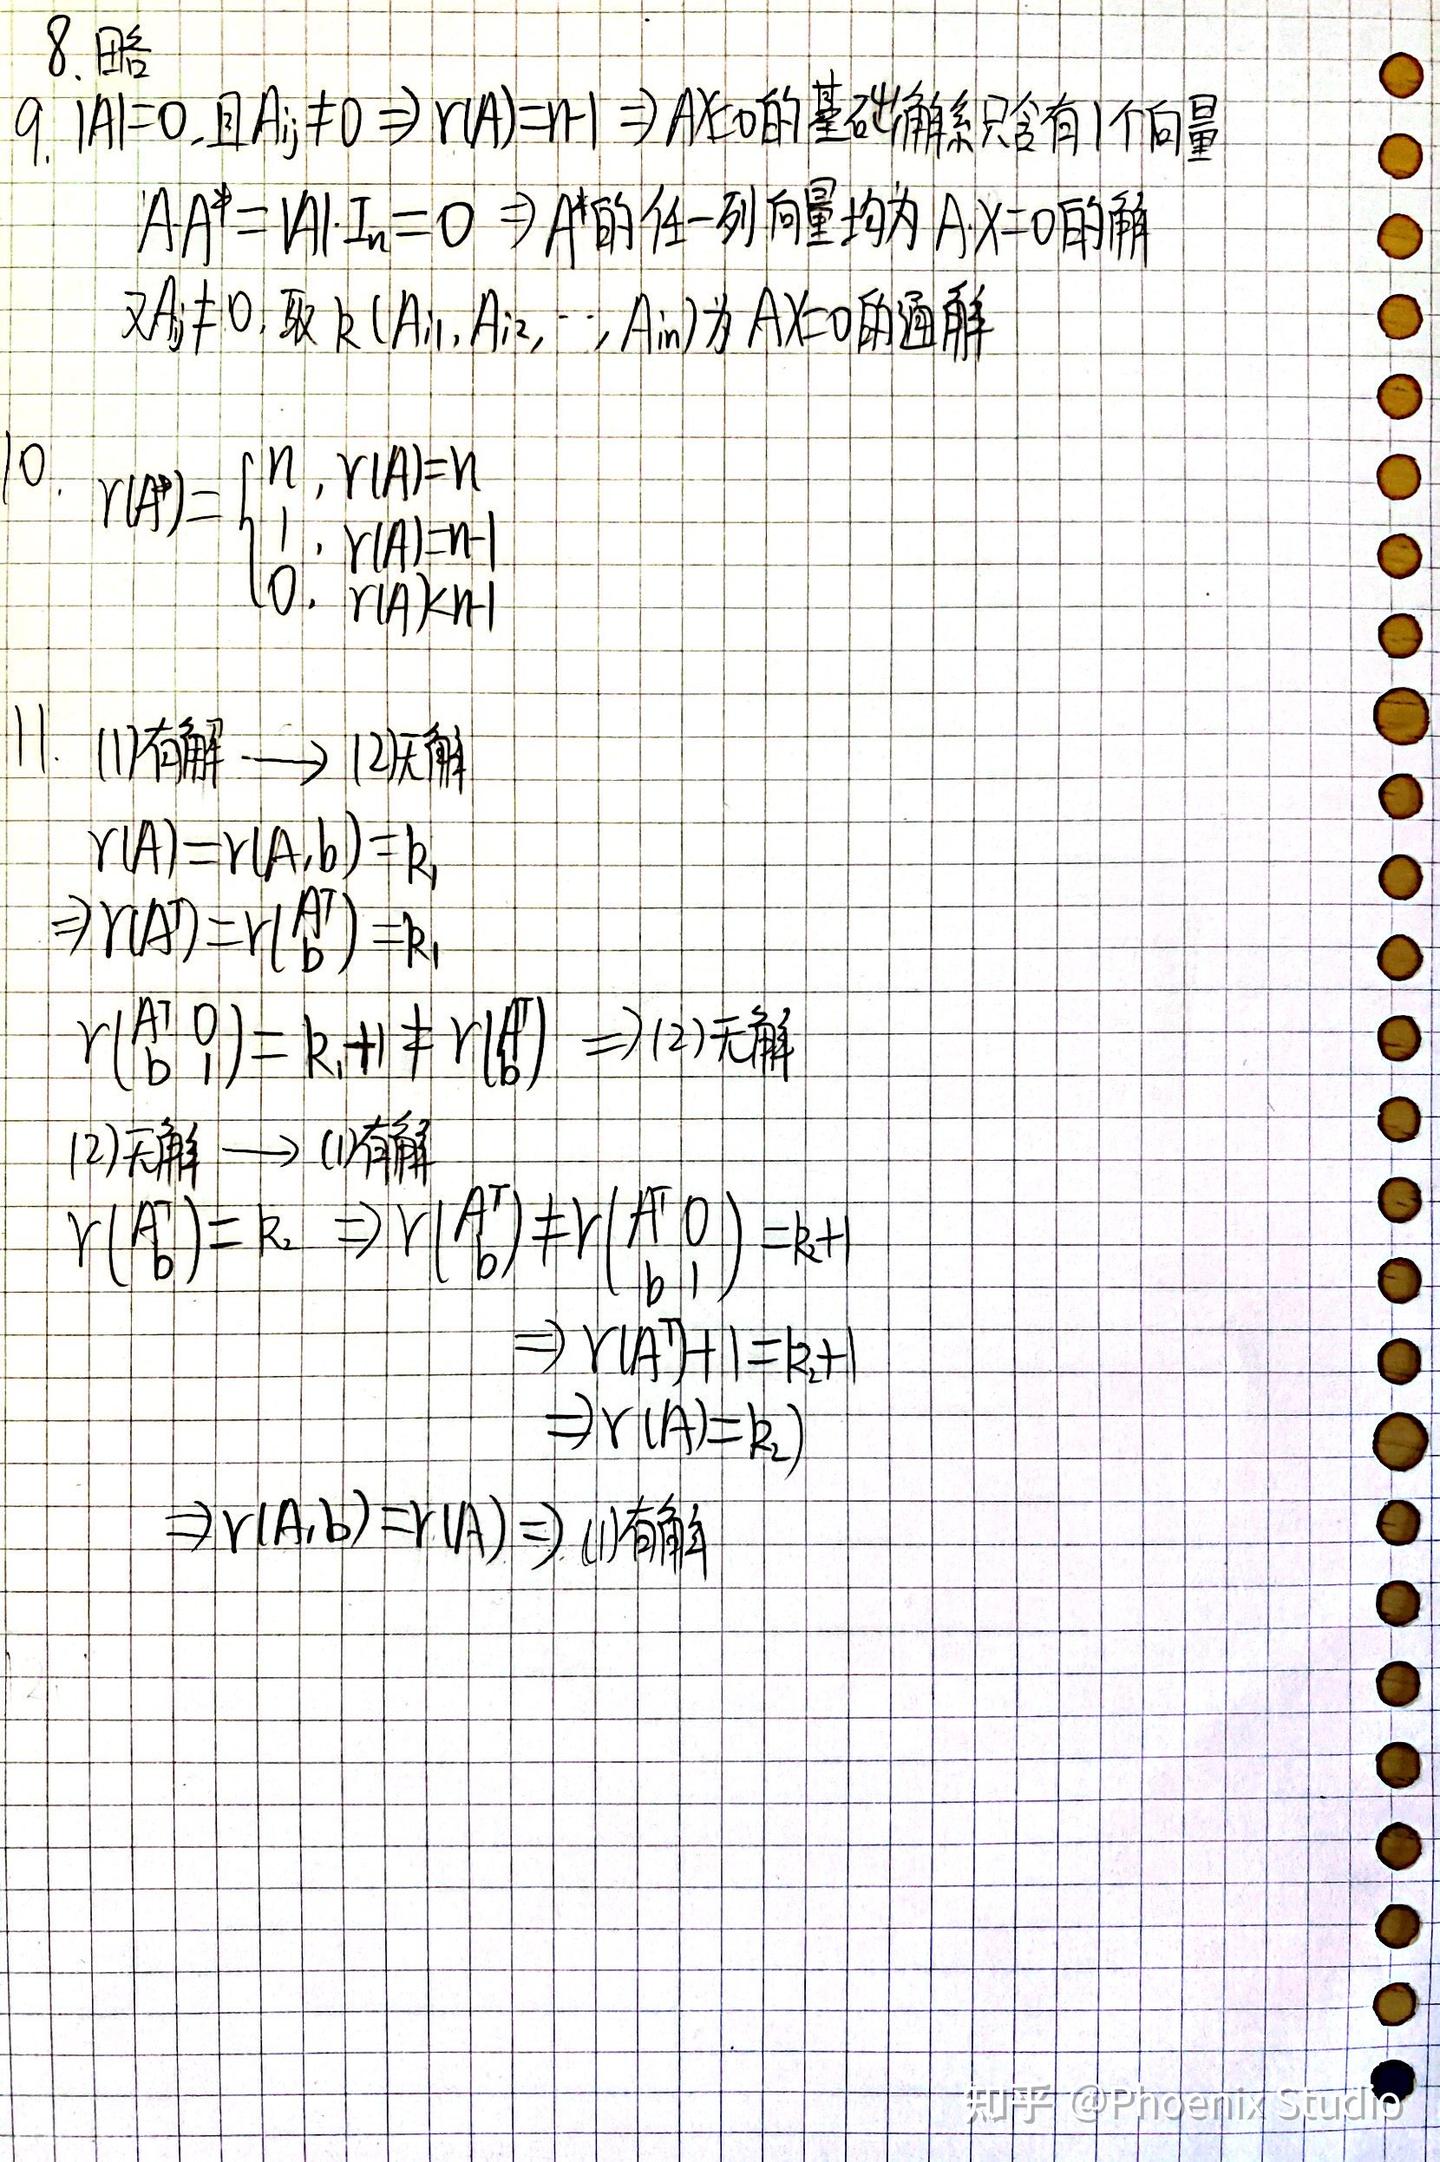 8. 略
9. |A|=0, 且Aij≠0 ⇒ r(A)=n-1 ⇒ AX=0的基础解系只含有1个向量
A·A*=|A|·In=0 ⇒ A*的任一列向量均为A·X=0的解
又Aij≠0, 取k(Ai1, Ai2, ⋯, Ain)为AX=0的通解
10. r(A*)= { n, r(A)=n
1, r(A)=n-1
0, r(A)<n-1
11. (1)有解 → (2)无解
r(A)=r(A,b)=k₁
⇒ r(Aᵀ)=r(Aᵀ; b)=k₁
r(Aᵀ 0; b 1)=k₁+1≠r(Aᵀ; b) ⇒ (2)无解
(2)无解 → (1)有解
r(Aᵀ; b)=k₂ ⇒ r(Aᵀ; b)≠r(Aᵀ 0; b 1)=k₂+1
⇒ r(Aᵀ)+1=k₂+1
⇒ r(A)=k₂)
⇒ r(A,b)=r(A) ⇒ (1)有解
知乎 @Phoenix Studio